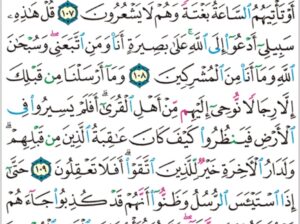 أَوْ تَأْتِيَهُمُ السَّاعَةُ بَغْتَةً وَهُمْ لَا يَشْعُرُونَ ١٠٧ قُلْ هَٰذِهِ
سَبِيلِي أَدْعُو إِلَى اللَّهِ عَلَىٰ بَصِيرَةٍ أَنَا وَمَنِ اتَّبَعَنِي وَسُبْحَانَ
اللَّهِ وَمَا أَنَا مِنَ الْمُشْرِكِينَ ١٠٨ وَمَا أَرْسَلْنَا مِن قَبْلِكَ
إِلَّا رِجَالًا نُّوحِي إِلَيْهِم مِّنْ أَهْلِ الْقُرَىٰ أَفَلَمْ يَسِيرُوا فِي
الْأَرْضِ فَيَنظُرُوا كَيْفَ كَانَ عَاقِبَةُ الَّذِينَ مِن قَبْلِهِمْ
وَلَدَارُ الْآخِرَةِ خَيْرٌ لِّلَّذِينَ اتَّقَوْا أَفَلَا تَعْقِلُونَ ١٠٩ حَتَّىٰ
إِذَا اسْتَيْئَسَ الرُّسُلُ وَظَنُّوا أَنَّهُمْ قَدْ كُذِبُوا جَاءَهُمْ